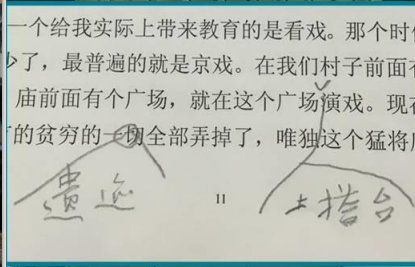 一个给我实际上带来教育的是看戏。那个时
少了，最普遍的就是京戏。在我们村子前面
庙前面有个广场，就在这个广场演戏。现
的贫穷的一切全部弄掉了，唯独这个猛将
遗迹 上搭台
11